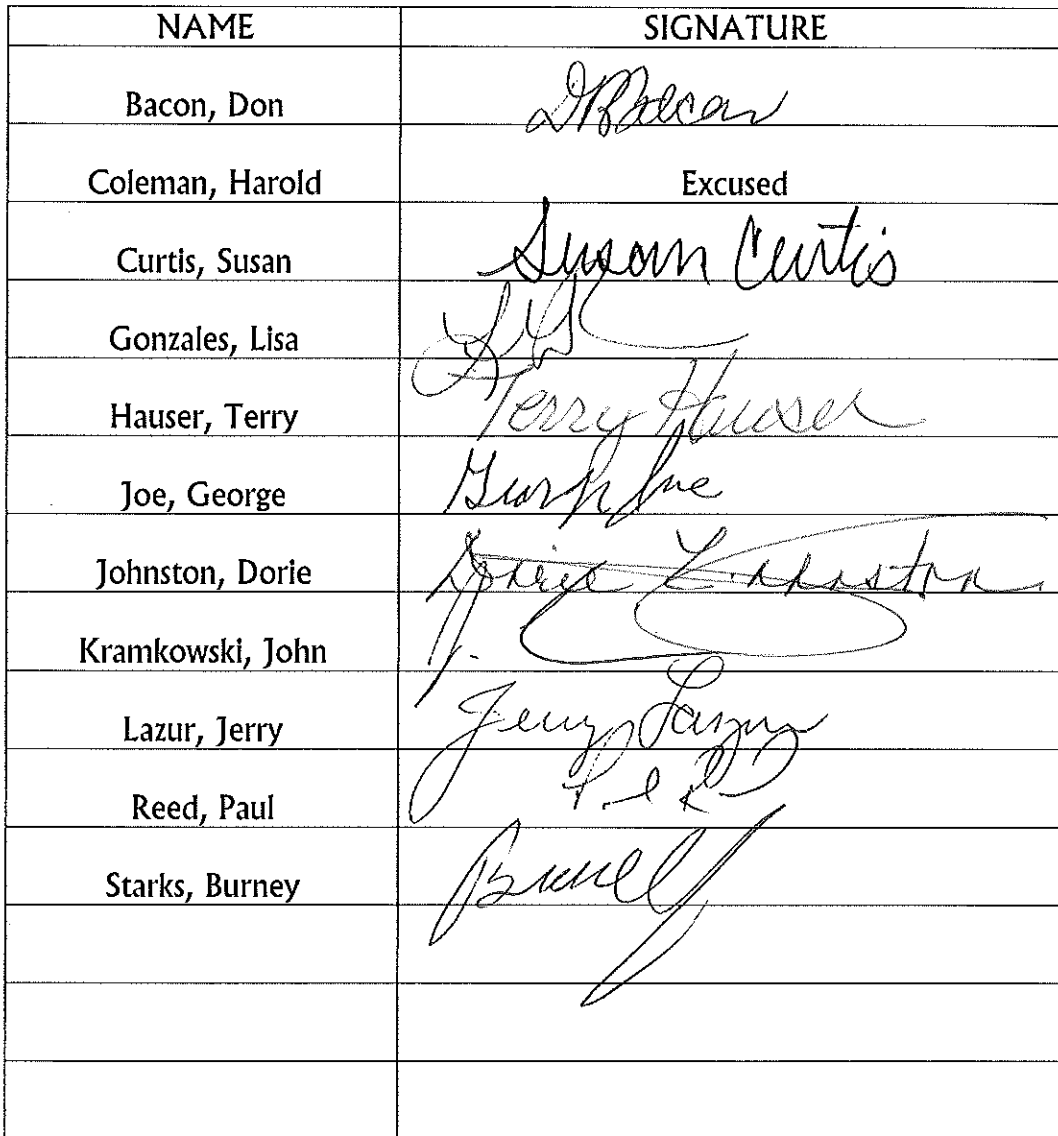 NAME SIGNATURE
Bacon, Don DBBacon
Coleman, Harold Excused
Curtis, Susan Susan Curtis
Gonzales, Lisa LG
Hauser, Terry Terry Hauser
Joe, George George Joe
Johnston, Dorie Dorie Johnston
Kramkowski, John J.
Lazur, Jerry Jerry Lazur
Reed, Paul
Starks, Burney